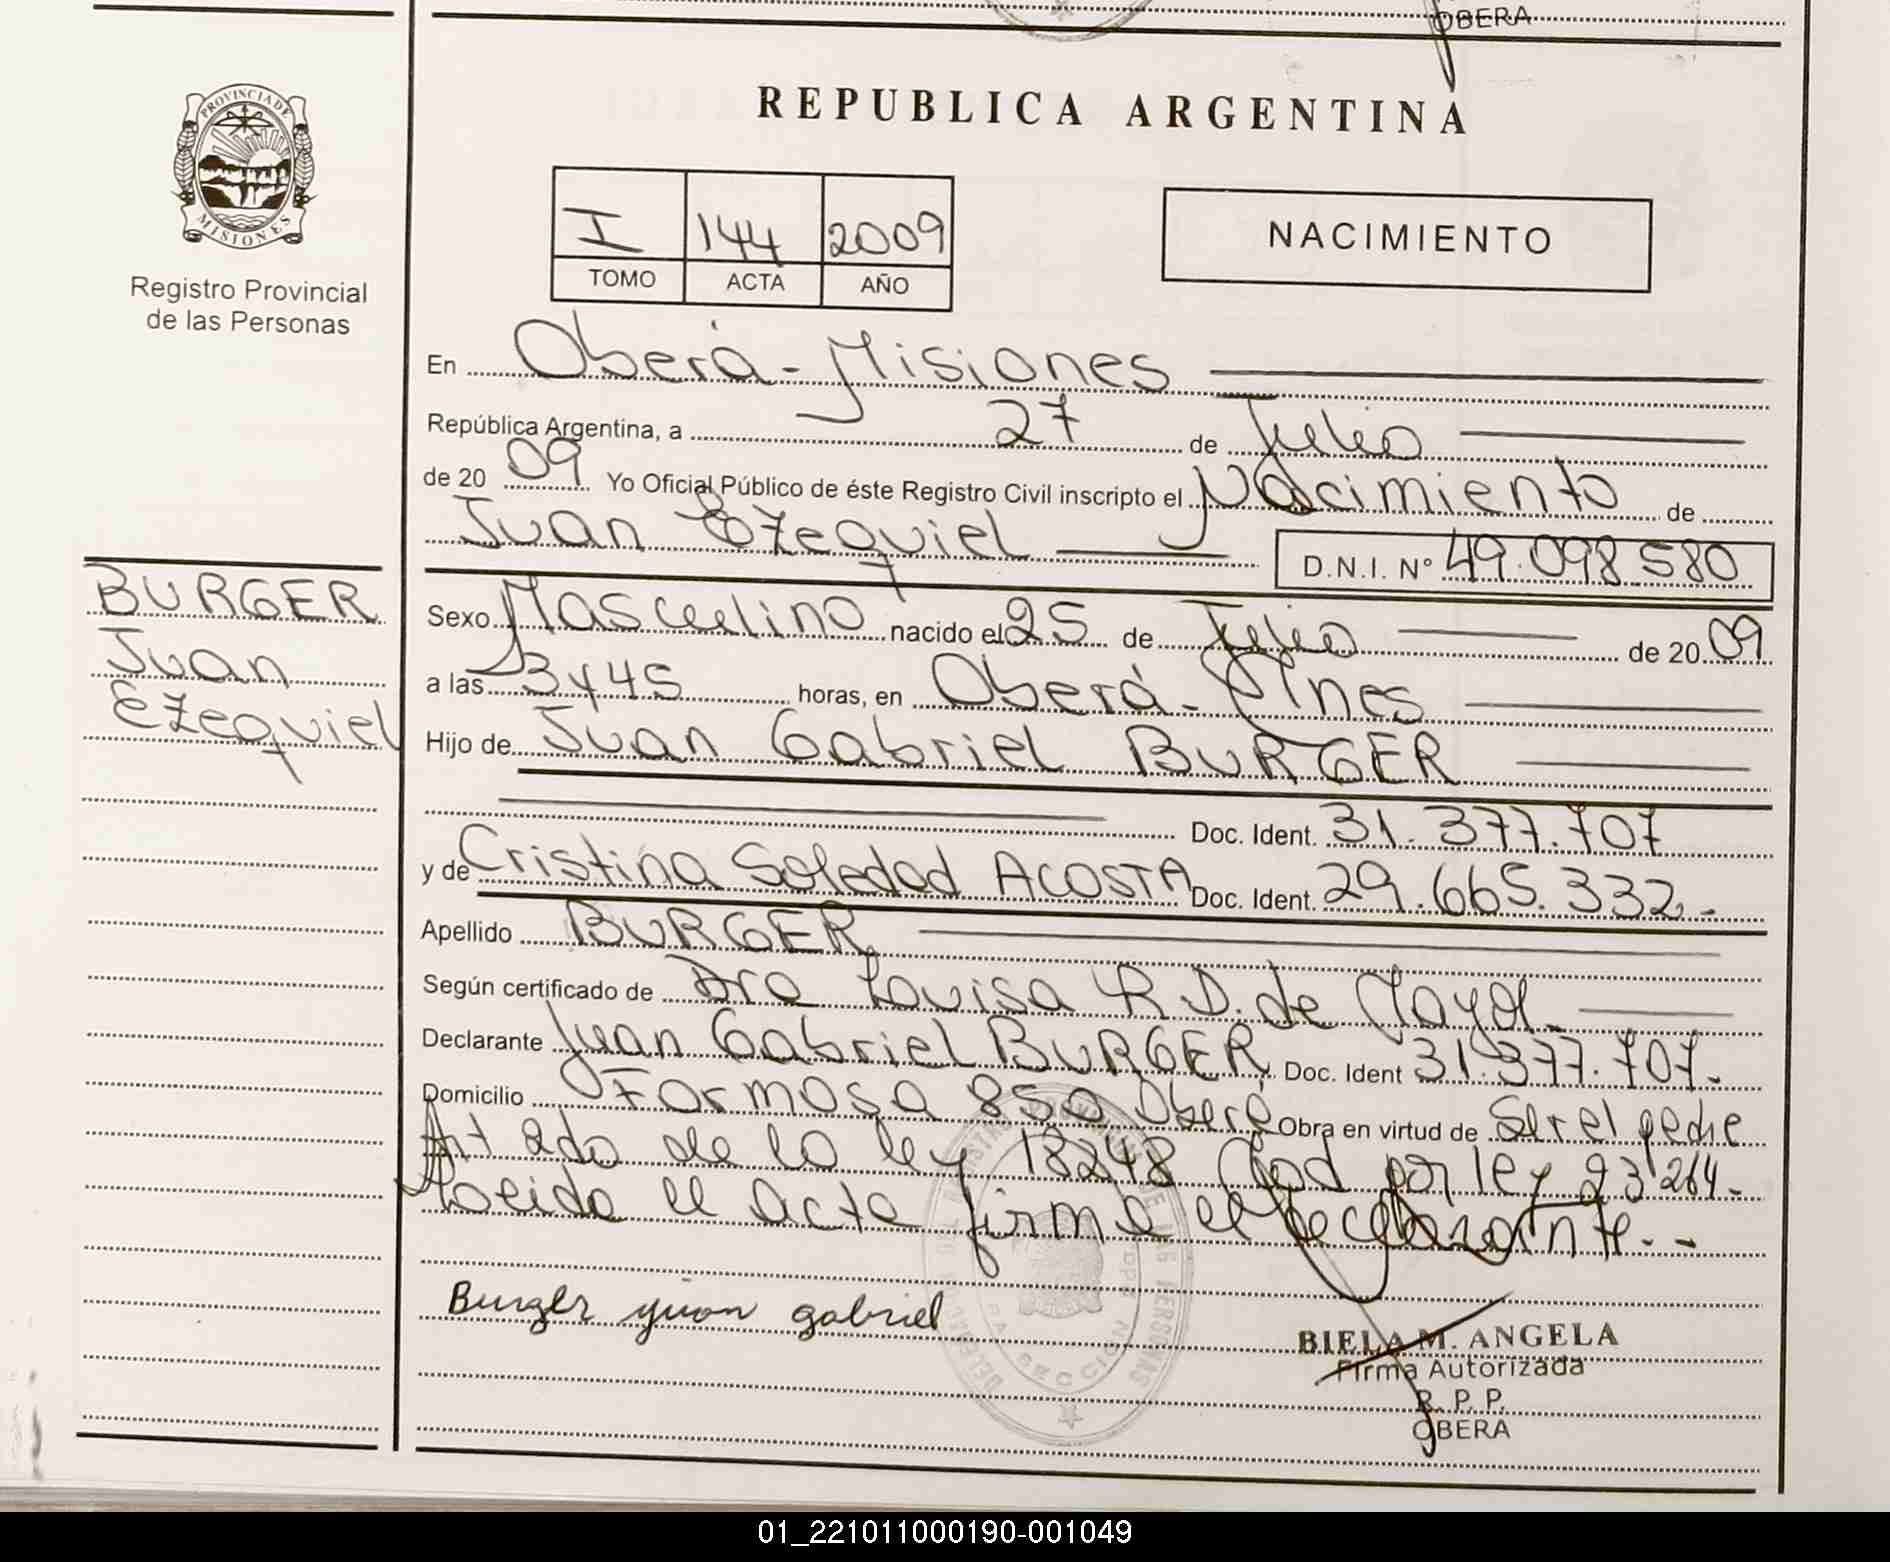 OBERA
PROVINCIA DE
MISIONES
Registro Provincial
de las Personas
REPUBLICA ARGENTINA
I 144 2009
TOMO ACTA AÑO
NACIMIENTO
En Oberá - Misiones
República Argentina, a 27 de Julio
de 20 09 Yo Oficial Público de éste Registro Civil inscripto el Nacimiento de
Juan Ezequiel D.N.I. Nº 49.098.580
BURGER
Juan
Ezequiel
Sexo Masculino nacido el 25 de Julio de 20 09
a las 3 y 45 horas, en Oberá - Mnes
Hijo de Juan Gabriel BURGER
Doc. Ident. 31.377.707
y de Cristina Soledad ACOSTA Doc. Ident. 29.665.332.-
Apellido BURGER
Según certificado de Dra Louisa R. D. de Mayol
Declarante Juan Gabriel BURGER Doc. Ident 31.377.707.-
Domicilio Formosa 850 Oberá Obra en virtud de Ser el padre
Art 2do de la ley 18248 Mod por ley 23264.-
Leida el Acta firma el Declarante.--
Burger juan gabriel
BIELA M. ANGELA
Firma Autorizada
R. P. P.
OBERA
01_221011000190-001049